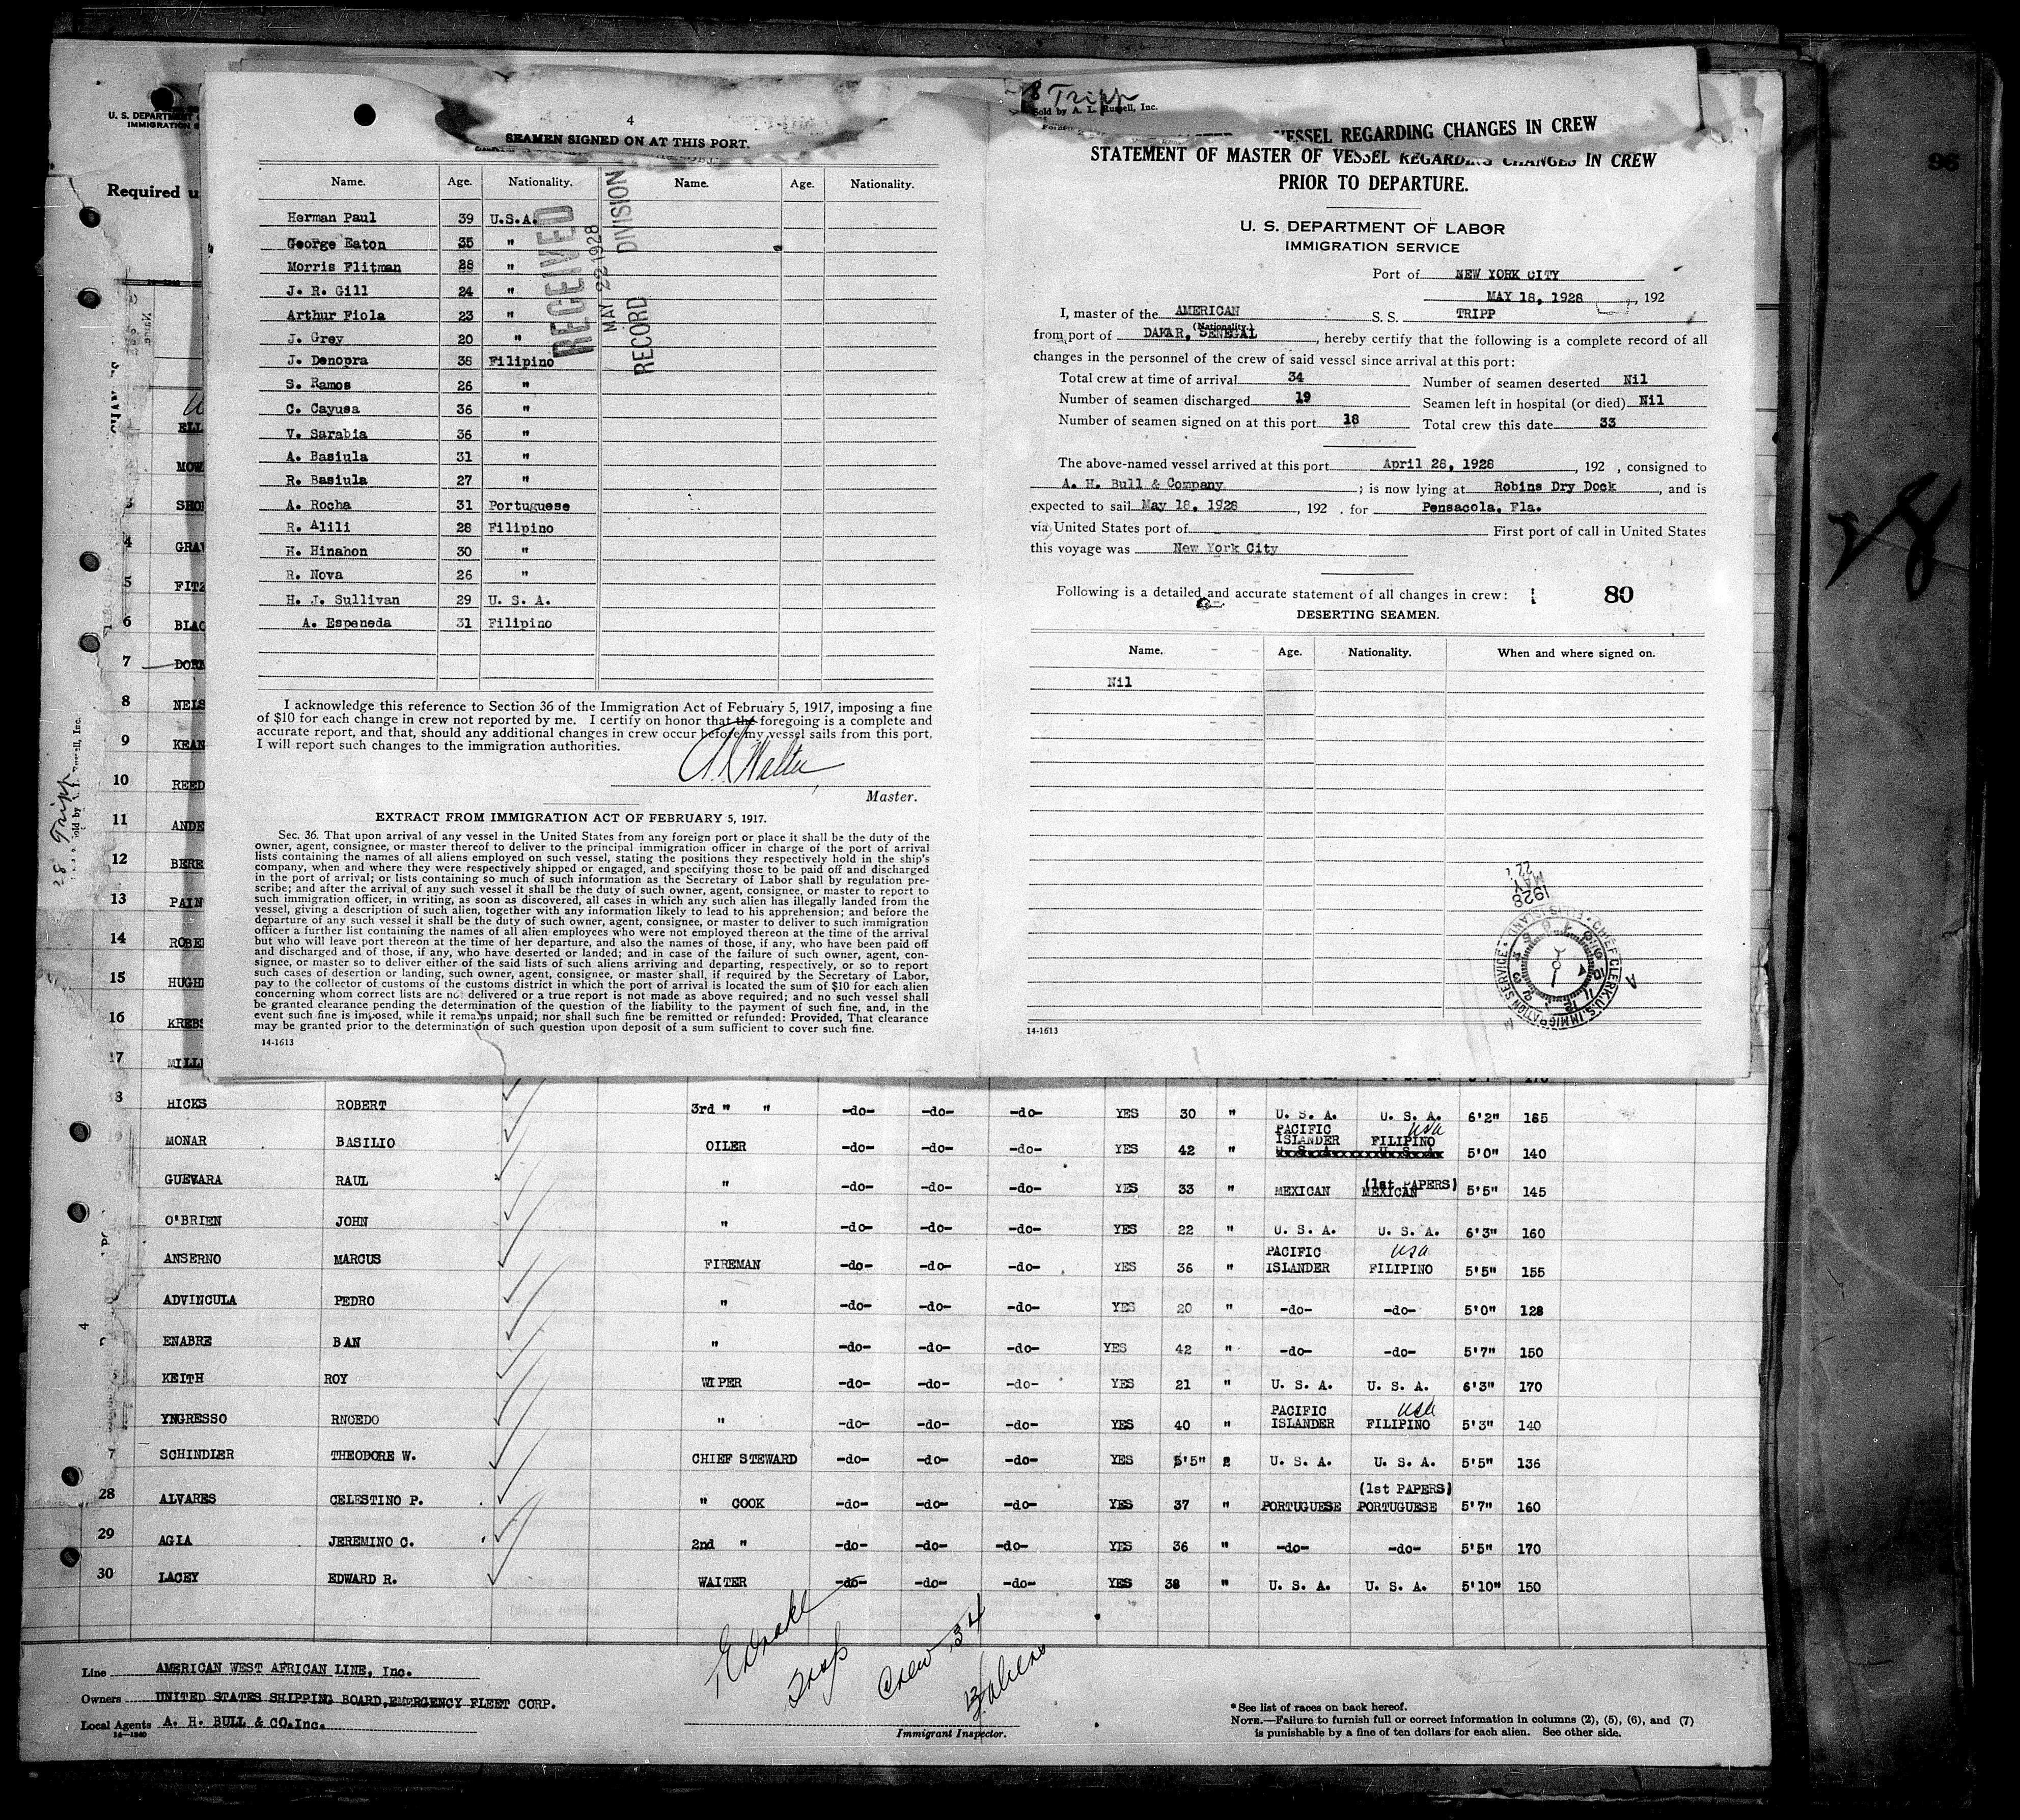 4
SEAMEN SIGNED ON AT THIS PORT.
Name. Age. Nationality. Name. Age. Nationality.
Herman Paul 39 U.S.A.
George Eaton 35 "
Morris Flitman 28 "
J. R. Gill 24 "
Arthur Fiola 23 "
J. Grey 20 "
J. Denopra 36 Filipino
S. Ramos 26 "
C. Cayusa 36 "
V. Sarabia 36 "
A. Basiula 31 "
R. Basiula 27 "
A. Rocha 31 Portuguese
R. Alili 28 Filipino
H. Hinahon 30 "
R. Nova 26 "
H. J. Sullivan 29 U. S. A.
A. Espeneda 31 Filipino
RECEIVED
MAY 22 1928
RECORD DIVISION
I acknowledge this reference to Section 36 of the Immigration Act of February 5, 1917, imposing a fine
of $10 for each change in crew not reported by me. I certify on honor that the foregoing is a complete and
accurate report, and that, should any additional changes in crew occur before my vessel sails from this port,
I will report such changes to the immigration authorities.
Walter
Master.
EXTRACT FROM IMMIGRATION ACT OF FEBRUARY 5, 1917.
Sec. 36. That upon arrival of any vessel in the United States from any foreign port or place it shall be the duty of the
owner, agent, consignee, or master thereof to deliver to the principal immigration officer in charge of the port of arrival
lists containing the names of all aliens employed on such vessel, stating the positions they respectively hold in the ship's
company, when and where they were respectively shipped or engaged, and specifying those to be paid off and discharged
in the port of arrival; or lists containing so much of such information as the Secretary of Labor shall by regulation pre-
scribe; and after the arrival of any such vessel it shall be the duty of such owner, agent, consignee, or master to report to
such immigration officer, in writing, as soon as discovered, all cases in which any such alien has illegally landed from the
vessel, giving a description of such alien, together with any information likely to lead to his apprehension; and before the
departure of any such vessel it shall be the duty of such owner, agent, consignee, or master to deliver to such immigration
officer a further list containing the names of all alien employees who were not employed thereon at the time of the arrival
but who will leave port thereon at the time of her departure, and also the names of those, if any, who have been paid off
and discharged and of those, if any, who have deserted or landed; and in case of the failure of such owner, agent, con-
signee, or master so to deliver either of the said lists of such aliens arriving and departing, respectively, or so to report
such cases of desertion or landing, such owner, agent, consignee, or master shall, if required by the Secretary of Labor,
pay to the collector of customs of the customs district in which the port of arrival is located the sum of $10 for each alien
concerning whom correct lists are not delivered or a true report is not made as above required; and no such vessel shall
be granted clearance pending the determination of the question of the liability to the payment of such fine, and, in the
event such fine is imposed, while it remains unpaid; nor shall such fine be remitted or refunded: Provided, That clearance
may be granted prior to the determination of such question upon deposit of a sum sufficient to cover such fine.
14-1613
28 Tripp
Sold by A. L. Russell, Inc.
VESSEL REGARDING CHANGES IN CREW
STATEMENT OF MASTER OF VESSEL REGARDING CHANGES IN CREW
PRIOR TO DEPARTURE.
U. S. DEPARTMENT OF LABOR
IMMIGRATION SERVICE
Port of NEW YORK CITY
MAY 18, 1928, 192
I, master of the AMERICAN S. S. TRIPP
(Nationality)
from port of DAKAR, SENEGAL, hereby certify that the following is a complete record of all
changes in the personnel of the crew of said vessel since arrival at this port:
Total crew at time of arrival 34 Number of seamen deserted Nil
Number of seamen discharged 19 Seamen left in hospital (or died) Nil
Number of seamen signed on at this port 18 Total crew this date 33
The above-named vessel arrived at this port April 28, 1928, 192 , consigned to
A. H. Bull & Company; is now lying at Robins Dry Dock, and is
expected to sail May 18, 1928, 192 . for Pensacola, Fla.
via United States port of First port of call in United States
this voyage was New York City
Following is a detailed and accurate statement of all changes in crew: 80
DESERTING SEAMEN.
Name. Age. Nationality. When and where signed on.
Nil
1928
MAY 22
CHIEF CLERK, U.S. IMMIGRATION SERVICE • ELLIS ISLAND
14-1613
96
U. S. DEPARTMENT
IMMIGRATION
Required u
ELL
MOW
3 SHO
4 GRA
5 FITZ
6 BLAC
7 DORN
8 NELS
9 KEAN
10 REED
11 ANDE
12 BERE
13 PAIN
14 ROBE
15 HUGH
16 KREBS
17 MILL
28 Tripp
8 HICKS ROBERT 3rd " " -do- -do- -do- YES 30 " U. S. A. U. S. A. 6'2" 185
MONAR BASILIO OILER -do- -do- -do- YES 42 " PACIFIC ISLANDER FILIPINO USA 5'0" 140
GUEVARA RAUL " -do- -do- -do- YES 33 " MEXICAN (1st PAPERS) MEXICAN 5'5" 145
O'BRIEN JOHN " -do- -do- -do- YES 22 " U. S. A. U. S. A. 6'3" 160
ANSERNO MARCUS FIREMAN -do- -do- -do- YES 36 " PACIFIC ISLANDER USA FILIPINO 5'5" 155
ADVINCULA PEDRO " -do- -do- -do- YES 20 " -do- -do- 5'0" 128
ENABRE BAN " -do- -do- -do- YES 42 " -do- -do- 5'7" 150
KEITH ROY WIPER -do- -do- -do- YES 21 " U. S. A. U. S. A. 6'3" 170
YNGRESSO RNCEDO " -do- -do- -do- YES 40 " PACIFIC ISLANDER USA FILIPINO 5'3" 140
7 SCHINDLER THEODORE W. CHIEF STEWARD -do- -do- -do- YES 5'5" U. S. A. U. S. A. 5'5" 136
28 ALVARES CELESTINO P. " COOK -do- -do- -do- YES 37 " PORTUGUESE (1st PAPERS) PORTUGUESE 5'7" 160
29 AGIA JEREMINO C. 2nd " -do- -do- -do- YES 36 " -do- -do- 5'5" 170
30 LACEY EDWARD R. WAITER -do- -do- -do- YES 38 " U. S. A. U. S. A. 5'10" 150
Crew 34
aliens
Line AMERICAN WEST AFRICAN LINE, Inc.
Owners UNITED STATES SHIPPING BOARD, EMERGENCY FLEET CORP.
Local Agents A. H. BULL & CO. Inc.
14-1240
Immigrant Inspector.
* See list of races on back hereof.
NOTE.—Failure to furnish full or correct information in columns (2), (5), (6), and (7)
is punishable by a fine of ten dollars for each alien. See other side.